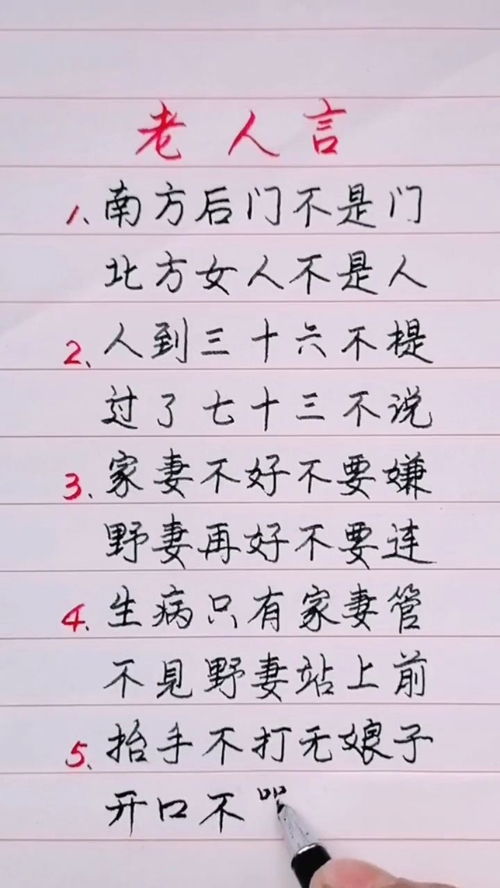 老人言
1、南方后门不是门
北方女人不是人
2、人到三十六不提
过了七十三不说
3、家妻不好不要嫌
野妻再好不要连
4、生病只有家妻管
不见野妻站上前
5、抬手不打无娘子
开口不